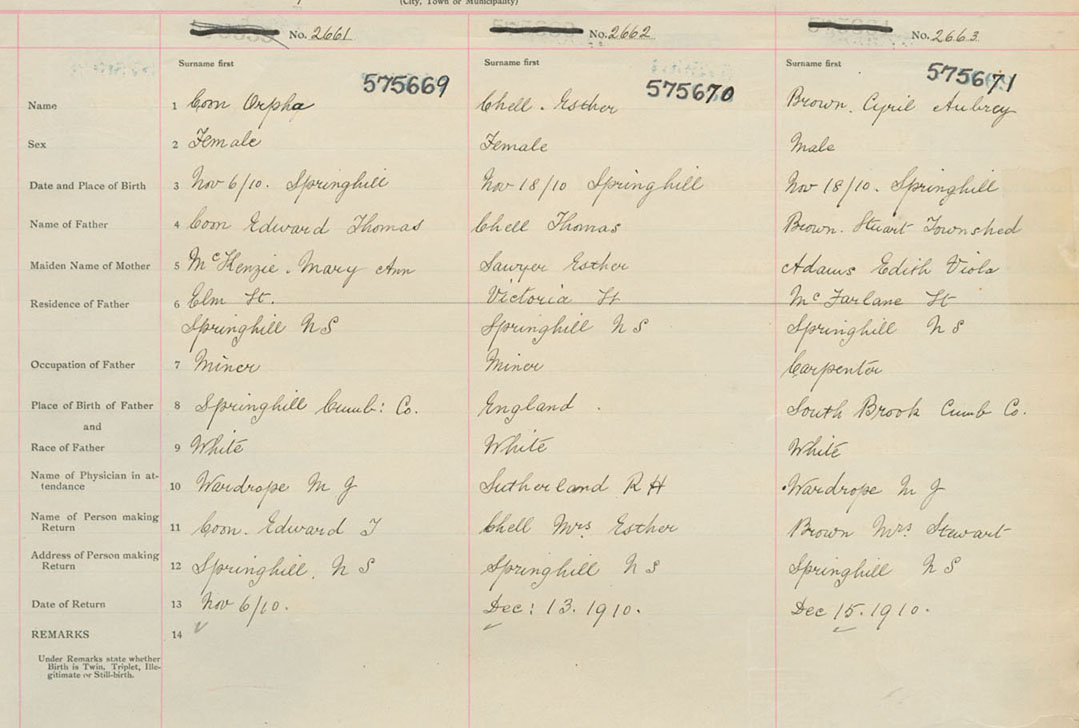 (City, Town or Municipality)
No. 2661 No. 2662 No. 2663
Surname first Surname first Surname first
575669 575670 575671
Name 1 Coon Orpha Chell. Esther Brown. Cyril Aubrey
Sex 2 Female Female Male
Date and Place of Birth 3 Nov 6/10. Springhill Nov 18/10 Springhill Nov 18/10. Springhill
Name of Father 4 Coon Edward Thomas Chell Thomas Brown. Stuart Townshed
Maiden Name of Mother 5 McKenzie. Mary Ann Sawyer Esther Adams Edith Viola
Residence of Father 6 Elm St. Victoria St McFarlane St
Springhill N S Springhill N S Springhill N S
Occupation of Father 7 Miner Miner Carpenter
Place of Birth of Father 8 Springhill Cumb: Co. England. South Brook Cumb Co.
and
Race of Father 9 White White White
Name of Physician in at-
tendance 10 Wardrope M J Sutherland R H Wardrope M J
Name of Person making
Return 11 Coon. Edward T Chell Mrs. Esther Brown Mrs. Stewart
Address of Person making
Return 12 Springhill. N S Springhill N S Springhill N S
Date of Return 13 Nov 6/10. Dec: 13. 1910. Dec 15. 1910.
REMARKS 14
Under Remarks state whether
Birth is Twin, Triplet, Ille-
gitimate or Still-birth.